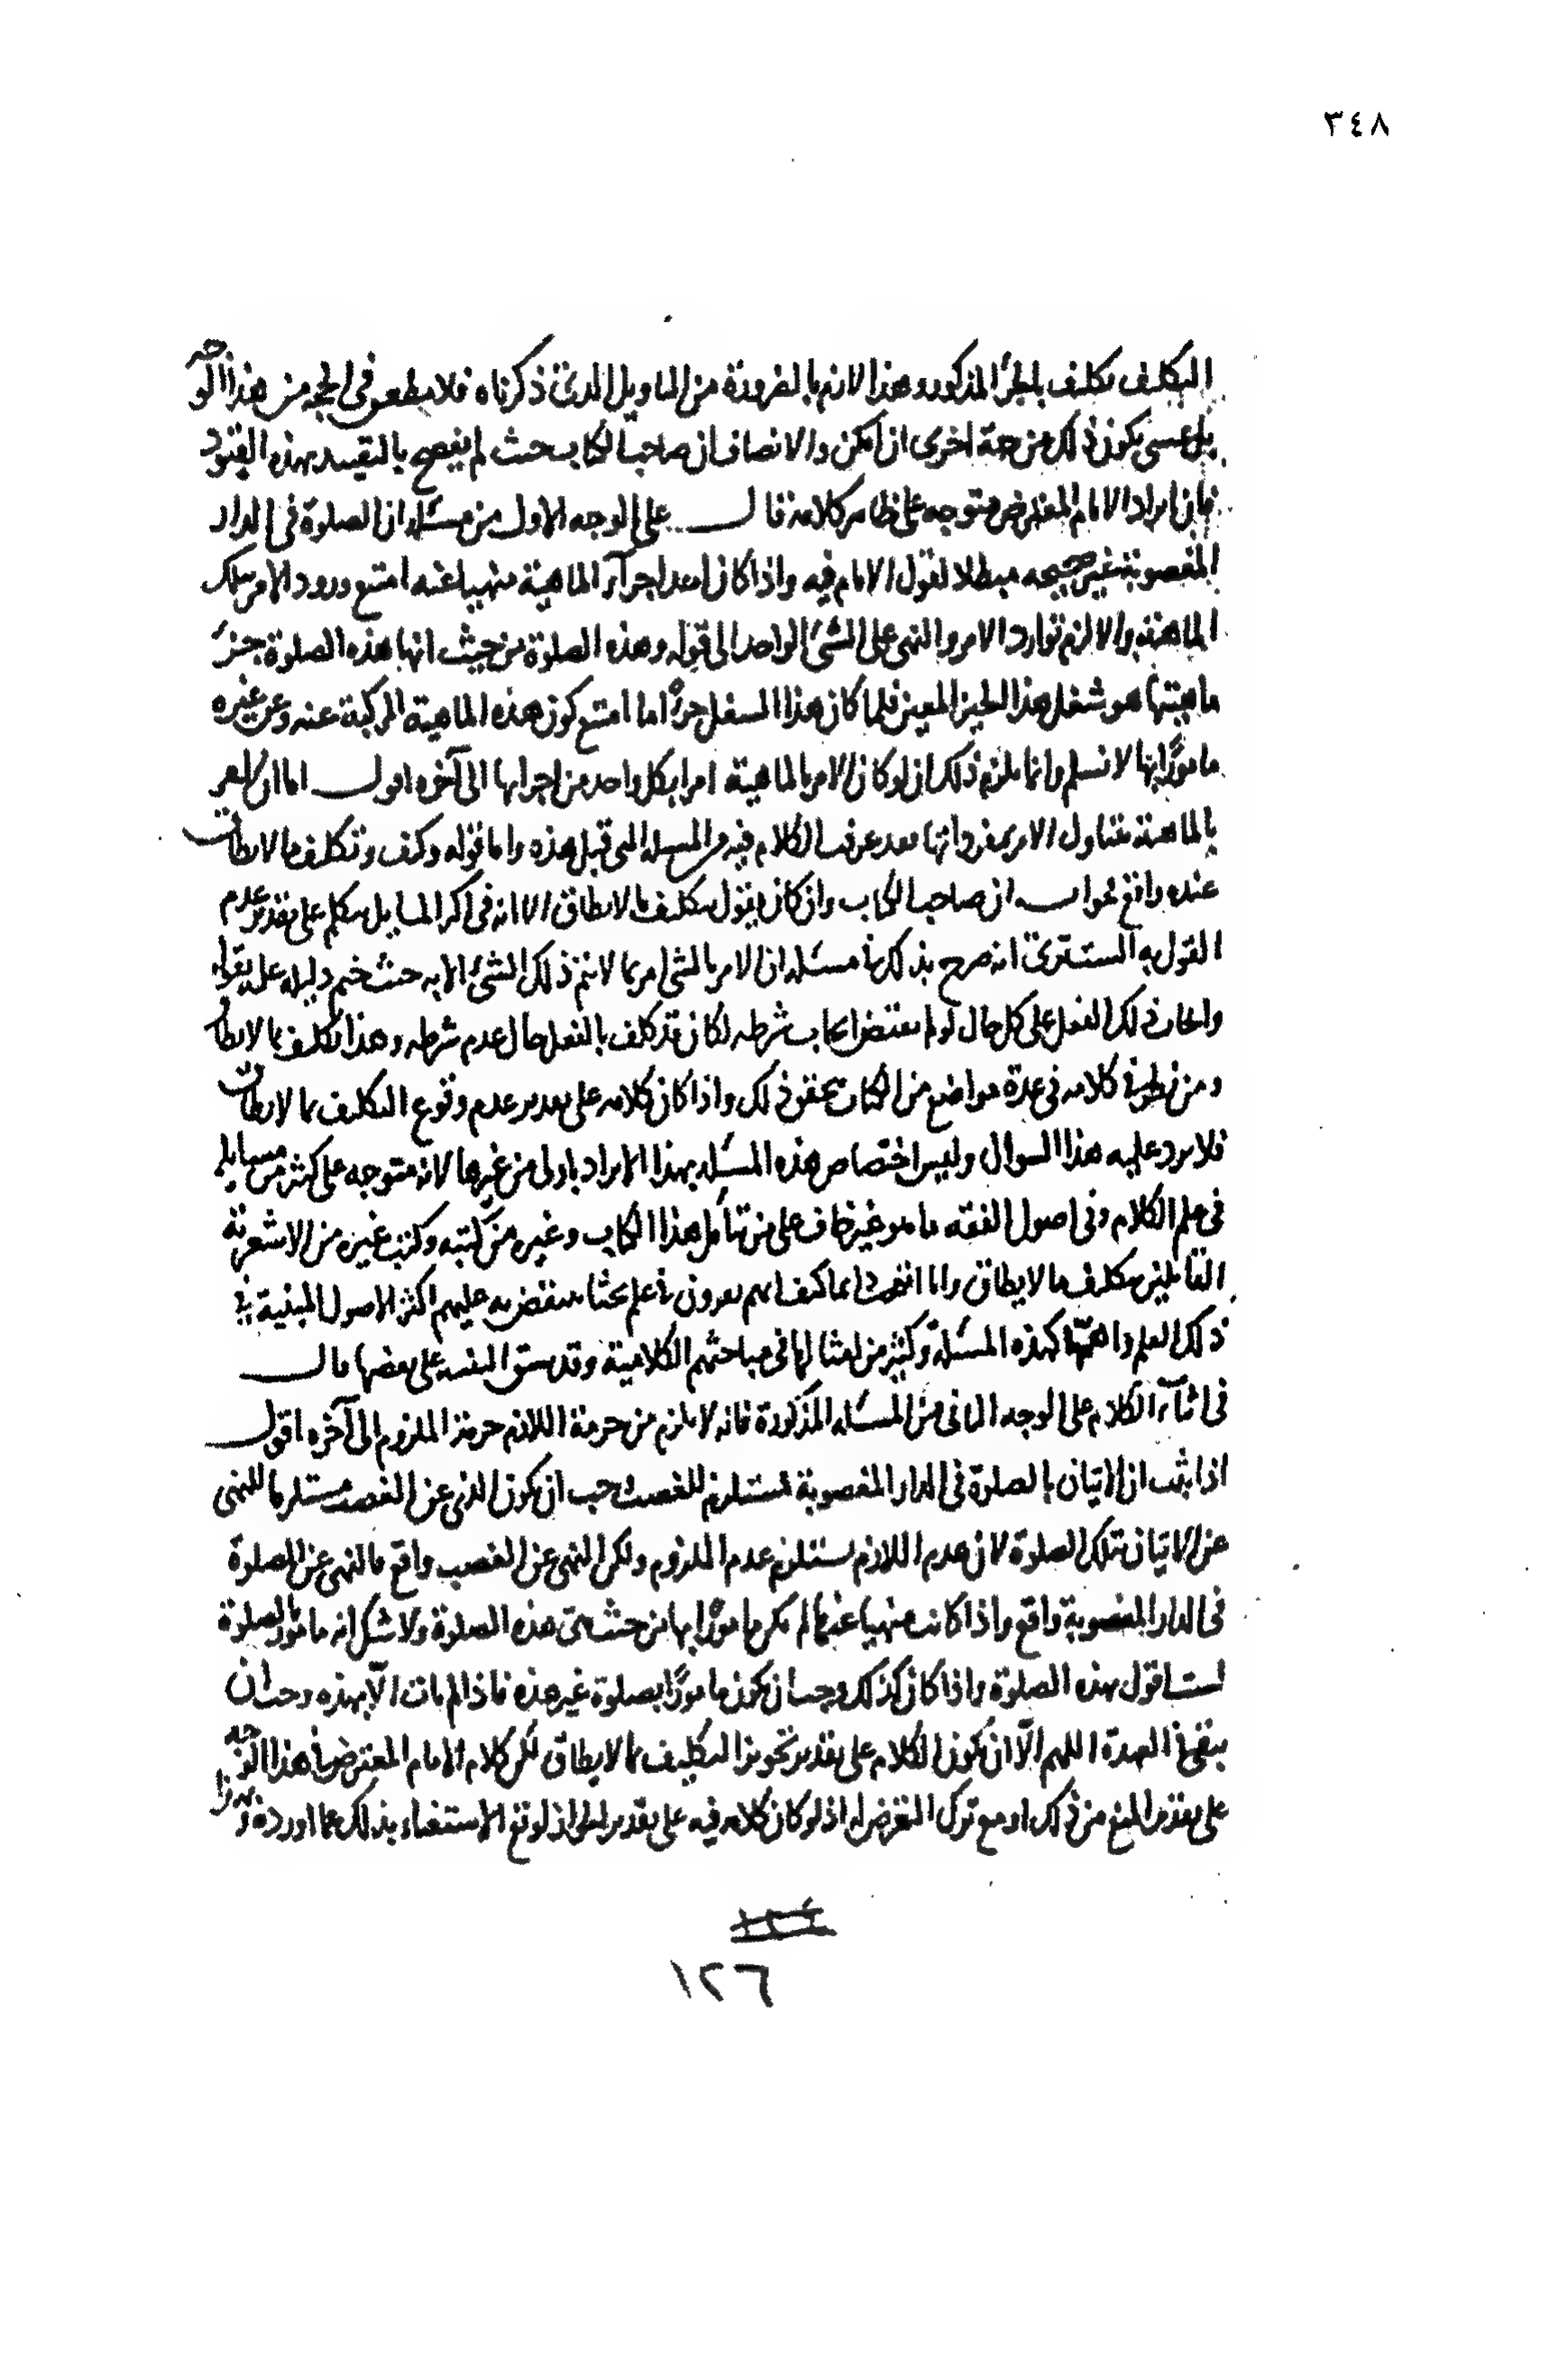 ٣٤٨
التكليف تكليف بالجزء المذكور وهذا لازم بالضرورة من التاويل الذي ذكرناه فلا يطعن في الحجه من هذا الوجه
بل عسى يكون ذلك من جهة اخرى ان امكن والانصاف ان صاحب الكتاب حيث لم يفصح بالتقييد بهذه القيود
فان ايراد الامام المعترض متوجه على ظاهر كلامه قال على الوجه الاول من مسئله ان الصلوة في الدار
المغصوبة غير صحيحه مبطلا لقول الامام فيه واذا كان احد اجزآء الماهية منهيا عنه امتنع ورود الامر بتلك
الماهية والا لزم توارد الامر والنهى على الشئ الواحد الى قوله وهذه الصلوة من حيث انها هذه الصلوة جزء
ماهيتها هو شغل هذا الحيز المعين فلما كان هذا الشغل حراما امتنع كون هذه الماهية المركبة عنه وعن غيره
مامورًا بها لا نسلم وانما يلزم ذلك ان لو كان الامر بالماهية امرا بكل واحد من اجزايها الى آخره اقول اما ان الامر
بالماهية يتناول الامر بمفرداتها فقد عرفت الكلام فيه في المسله التي قبل هذه واما قوله وكيف وتكليف ما لا يطاق
عنده واقع فجوابه ان صاحب الكتاب وان كان يقول بتكليف ما لا يطاق الا انه في اكثر المسايل يتكلم على تقدير عدم
القول به انه صرح بذلك في مسئله ان الامر بالشئ امر بما لا يتم ذلك الشئ الا به حيث ختم دليله عليه بقوله
وايجاب ذلك الفعل على كل حال لو لم يقتض ايجاب شرطه لكان قد كلف بالفعل حال عدم شرطه وهذا تكليف بما لا يطاق
ومن نظر في كلامه في عدة مواضع من الكتاب تحقق ذلك واذا كان كلامه على تقدير عدم وقوع التكليف بما لا يطاق
فلا يرد عليه هذا السوال وليس اختصاص هذه المسئله بهذا الايراد باولى من غيرها لانه متوجه على كثير من مسايله
في علم الكلام وفي اصول الفقه ما هو غير خاف على من تأمل هذا الكتاب وغيره من كتبه وكتب غيره من الاشعرية
القائلين بتكليف ما لا يطاق وانا اتعجب دايما كيف انهم يوردون في علم بحثا ينتقض به عليهم اكثر الاصول المبنية في
ذلك العلم واهمّها كهذه المسئلة وكثير من امثالها في مباحثهم الكلامية وقد سبق التنبيه على بعضها قال
في اثنآء الكلام على الوجه الثاني من المسئله المذكورة فانه لا يلزم من حرمة اللازم حرمة الملزوم الى آخره اقول
اذا ثبت ان الاتيان بالصلوة في الدار المغصوبة مستلزم للغصب وجب ان يكون النهى عن الغصب مستلزما للنهى
عن الاتيان بتلك الصلوة لان عدم اللازم يستلزم عدم الملزوم ولكن النهى عن الغصب واقع فالنهى عن الصلوة
في الدار المغصوبة واقع واذا كانت منهيا عنها لم يكن مامورًا بها من حيث هى هذه الصلوة ولا شك انه مامور بالصلوة
لست اقول بهذه الصلوة واذا كان كذلك وجب ان يكون مامورًا بصلوة غير هذه فاذا لم يات الّا بهذه وجب ان
يبقى في العهدة اللهم الّا ان يكون الكلام على تقدير تجويز التكليف بما لا يطاق لكن كلام الامام المعترض في هذا الوجه
على تقدير المنع من ذلك او مع ترك التعرض له اذ لو كان كلامه فيه على تقدير الجواز لوقع الاستغناء بذلك عما اورده وبهذا
١٢٦